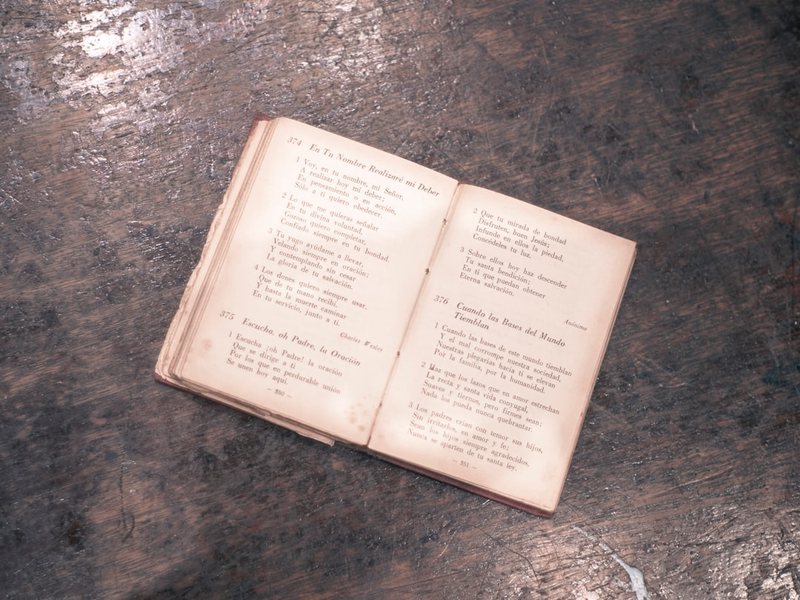 374 En Tu Nombre Realizaré mi Deber
1 Voy, en tu nombre, mi Señor,
A realizar hoy mi deber;
En pensamiento o en acción,
Sólo a ti quiero obedecer.
2 Lo que me quieras señalar
En tu divina voluntad,
Gozoso quiero completar,
Confiado siempre en tu bondad.
3 Tu yugo ayúdame a llevar,
Velando siempre en oración;
Y contemplando sin cesar
La gloria de tu salvación.
4 Los dones quiero siempre usar.
Que de tu mano recibí,
Y hasta la muerte caminar
En tu servicio, junto a ti.
Charles Wesley
375 Escucha, oh Padre, la Oración
1 Escucha ¡oh Padre! la oración
Que se dirige a ti
Por los que en perdurable unión
Se unen hoy aquí.
— 350 —
2 Que tu mirada de bondad
Disfruten, buen Jesús;
Infunde en ellos la piedad,
Concédeles tu luz.
3 Sobre ellos hoy haz descender
Tu santa bendición;
En ti que puedan obtener
Eterna salvación.
Anónimo
376 Cuando las Bases del Mundo
Tiemblan
1 Cuando las bases de este mundo tiemblan
Y el mal corrompe nuestra sociedad,
Nuestras plegarias hacia ti se elevan
Por la familia, por la humanidad.
2 Haz que los lazos que en amor estrechan
La recta y santa vida conyugal,
Suaves y tiernos, pero firmes sean;
Nada los pueda nunca quebrantar.
3 Los padres críen con temor sus hijos,
Sin irritarlos, en amor y fe;
Sean los hijos siempre agradecidos,
Nunca se aparten de tu santa ley.
— 351 —